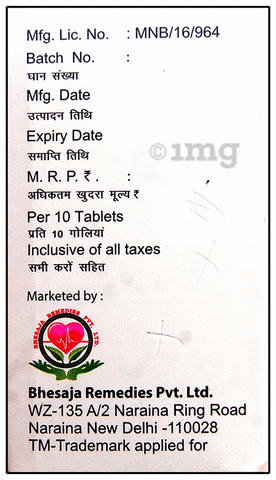 Mfg. Lic. No. : MNB/16/964
Batch No. :
घान संख्या
Mfg. Date
उत्पादन तिथि
Expiry Date
समाप्ति तिथि
©1mg
M. R. P. ₹ . :
अधिकतम खुदरा मूल्य ₹
Per 10 Tablets
प्रति 10 गोलियां
Inclusive of all taxes
सभी करों सहित
Marketed by :
BHESAJA REMEDIES PVT. LTD.
Bhesaja Remedies Pvt. Ltd.
WZ-135 A/2 Naraina Ring Road
Naraina New Delhi -110028
TM-Trademark applied for